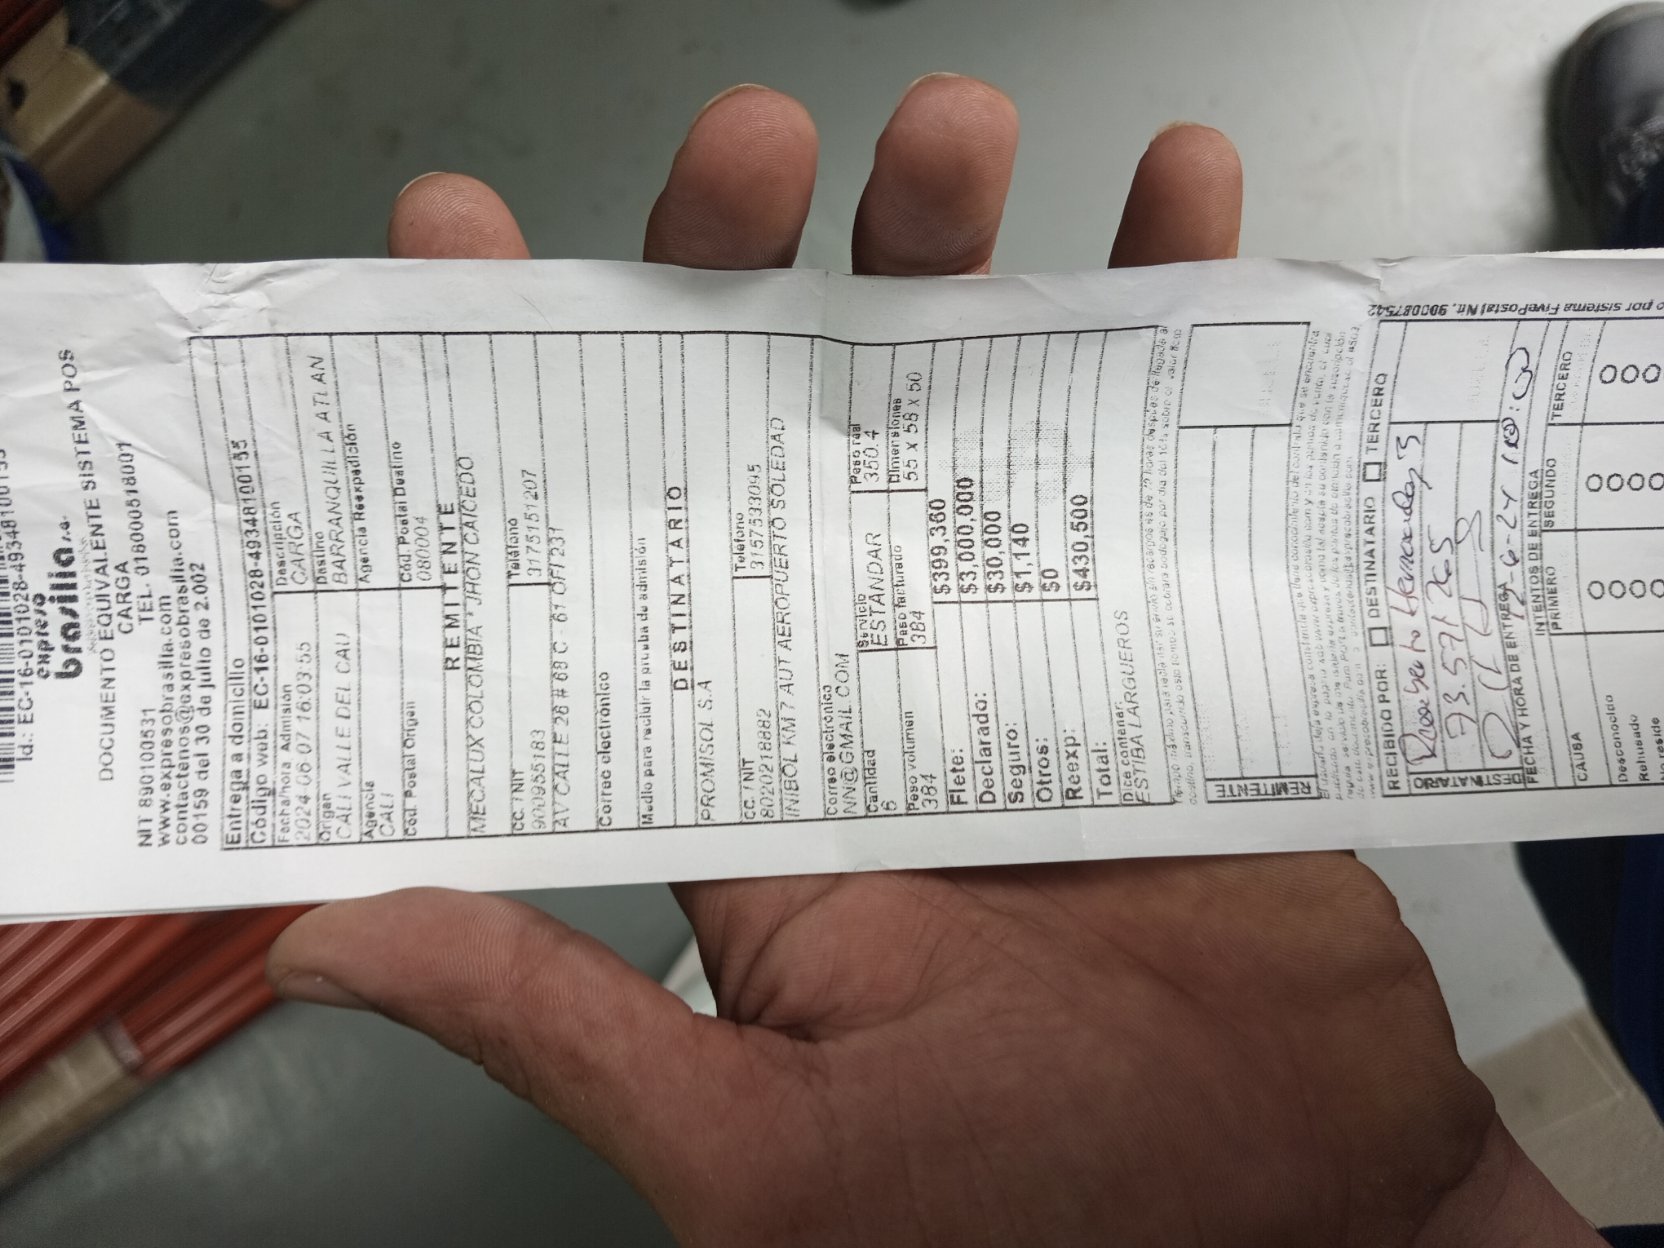 Id.: EC-16-0101028-4934810015
expreso
brasilia s.a.
DOCUMENTO EQUIVALENTE SISTEMA POS
CARGA
NIT 890100531 TEL. 018000518001
www.expresobrasilia.com
contactenos@expresobrasilia.com
00159 del 30 de julio de 2.002
Entrega a domicilio
Código web: EC-16-0101028-49348100155
Fecha/hora Admisión Descripción
2024-06-07 16:03:55 CARGA
Origen Destino
CALI VALLE DEL CAU BARRANQUILLA ATLAN
Agencia Agencia Reexpedición
CALI
Cód. Postal Origen Cód. Postal Destino
080004
REMITENTE
MECALUX COLOMBIA * JHON CAICEDO
CC. / NIT Teléfono
900955183 3175151207
AV CALLE 26 # 69 C - 61 OFI 231
Correo electrónico
Medio para recibir la prueba de admisión
DESTINATARIO
PROMISOL S.A
CC. / NIT Teléfono
8020218882 3157533095
INIBOL KM 7 AUT AEROPUERTO SOLEDAD
Correo electrónico
NN@GMAIL.COM
Cantidad Servicio Peso real
6 ESTANDAR 350.4
Peso volumen Peso facturado Dimensiones
384 384 55 X 58 X 50
Flete: $399,360
Declarado: $3,000,000
Seguro: $30,000
Otros: $1,140
Reexp: $0
Total: $430,500
Dice contener:
ESTIBA LARGUEROS
REMITENTE
RECIBIDO POR: DESTINATARIO TERCERO
DESTINATARIO
Hernandez
73.571265
FECHA Y HORA DE ENTREGA 12-6-24 10:00
INTENTOS DE ENTREGA
PRIMERO SEGUNDO TERCERO
CAUSA
Desconocido
Rehusado
No reside
por sistema FivePostal Nit. 900087542